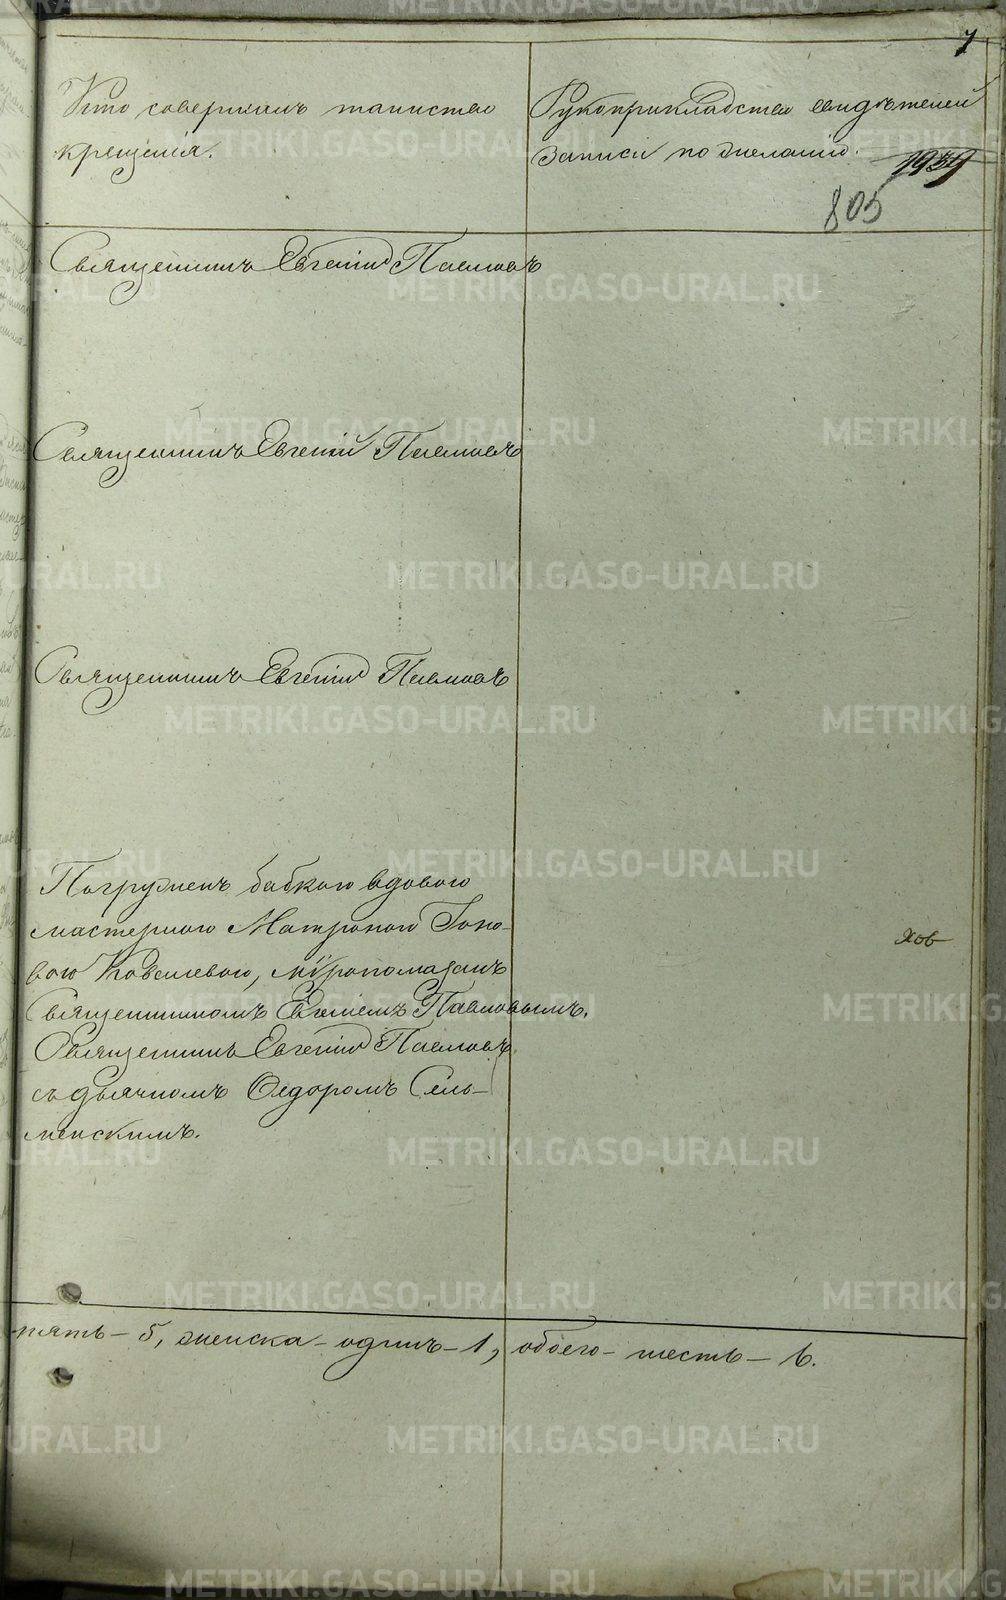 7
Кто совершалъ таинство
крещенія.
Рукоприкладство свидѣтелей
записи по желанію.
1939
805
Священникъ Евгеній Павловъ
Священникъ Евгеній Павловъ
Священникъ Евгеній Павловъ
Погруженъ бабкою вдовою
мастерскою Матроною
вою Ковалевою, мѵропомазанъ
Священникомъ Евгеніемъ Павловымъ.
Священникъ Евгеній Павловъ
съ дьячкомъ Ѳедоромъ Сель-
менскимъ.
хов
пять – 5, женска – одинъ – 1, обоего – шесть – 6.
METRIKI.GASO-URAL.RU